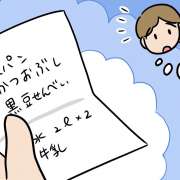 パン
かつおぶし
黒豆せんべい
水 2ℓ×2
牛乳